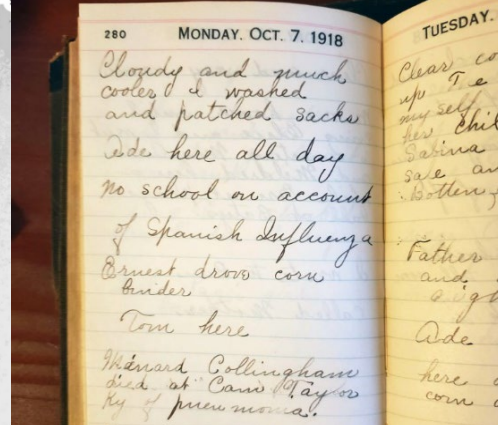 280 MONDAY. OCT. 7. 1918
Cloudy and much
cooler I washed
and patched sacks
Ade here all day
no school on account
of Spanish Influenza
Ernest drove corn
binder
Tom here
Collingham
died at Cam Taylor
Ky of pneumonia.
TUESDAY.
Clear
up
my self
her
Sabina
Father
and
Ade
here
corn